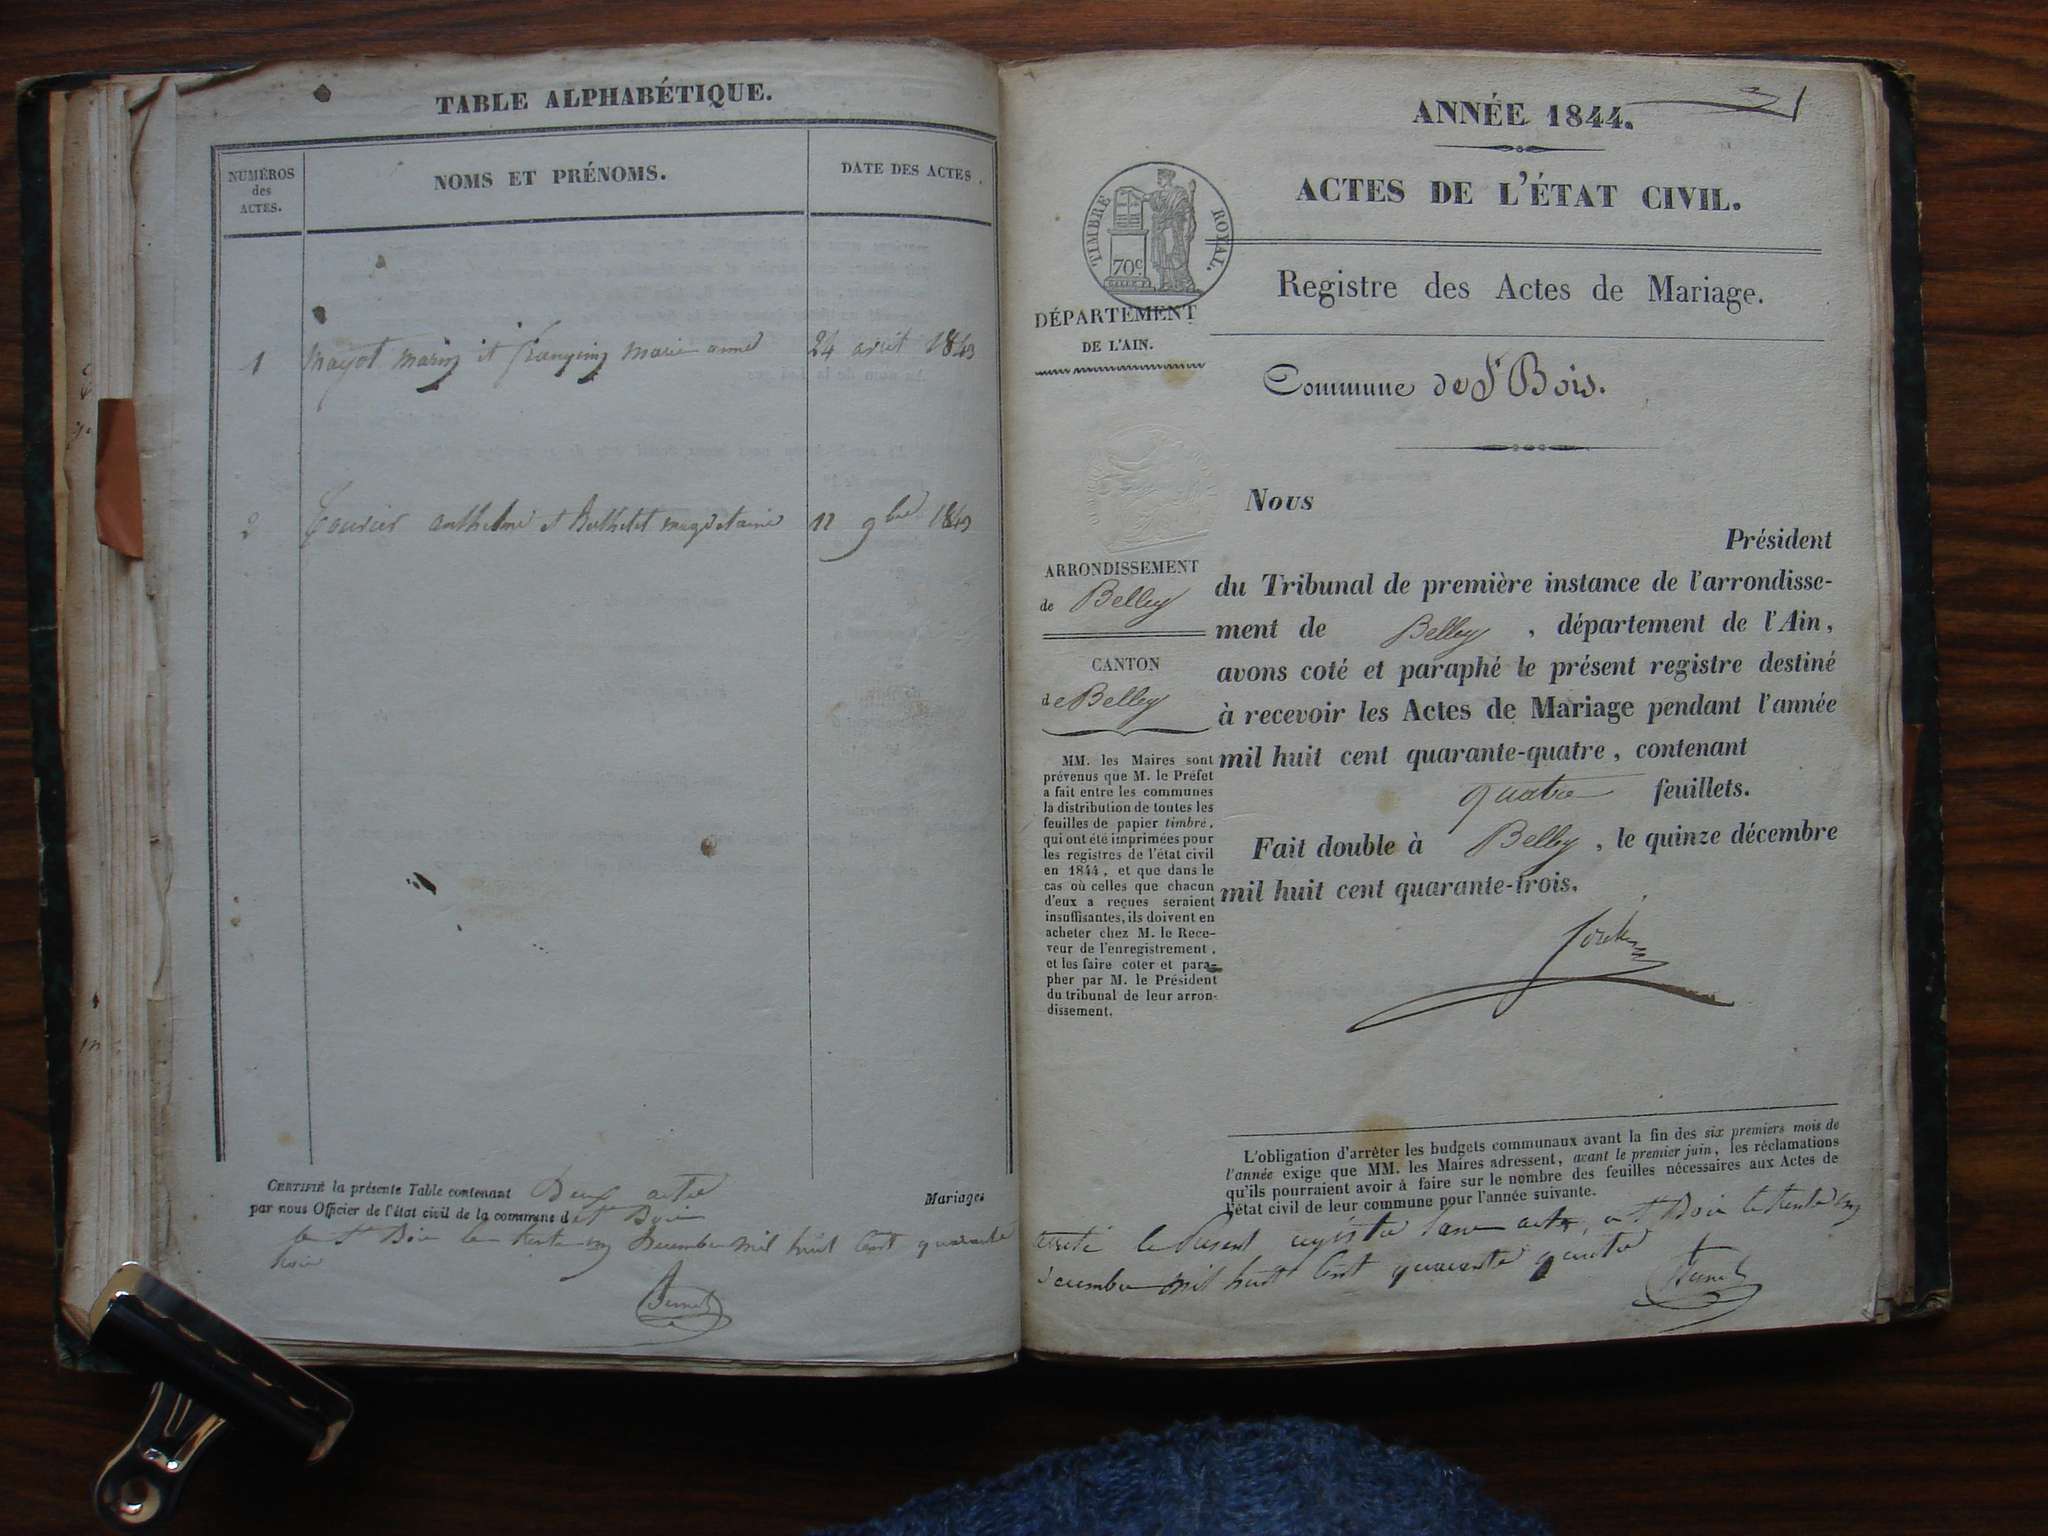 TABLE ALPHABÉTIQUE.
NUMÉROS
des
ACTES.
NOMS ET PRÉNOMS.
DATE DES ACTES.
1 mayot marin et françoin marie anne 24 avril 1843
2 anthelme et Berthelet 11 9bre 1843
CERTIFIÉ la présente Table contenant Deux actes Mariages
par nous Officier de l'état civil de la commune de St Bois
a St Bois le trente un Decembre mil huit cent quarante
trois
ANNÉE 1844.
ACTES DE L'ÉTAT CIVIL.
TIMBRE ROYAL.
70c
Registre des Actes de Mariage.
DÉPARTEMENT
DE L'AIN.
Commune de St Bois.
Nous
Président
du Tribunal de première instance de l'arrondisse-
ment de Belley, département de l'Ain,
avons coté et paraphé le présent registre destiné
à recevoir les Actes de Mariage pendant l'année
mil huit cent quarante-quatre, contenant
quatre feuillets.
Fait double à Belley, le quinze décembre
mil huit cent quarante-trois.
ARRONDISSEMENT
de Belley
CANTON
de Belley
MM. les Maires sont
prévenus que M. le Préfet
a fait entre les communes
la distribution de toutes les
feuilles de papier timbré,
qui ont été imprimées pour
les registres de l'état civil
en 1844, et que dans le
cas où celles que chacun
d'eux a reçues seraient
insuffisantes, ils doivent en
acheter chez M. le Rece-
veur de l'enregistrement,
et les faire coter et para-
pher par M. le Président
du tribunal de leur arron-
dissement.
L'obligation d'arrêter les budgets communaux avant la fin des six premiers mois de
l'année exige que MM. les Maires adressent, avant le premier juin, les réclamations
qu'ils pourraient avoir à faire sur le nombre des feuilles nécessaires aux Actes de
l'état civil de leur commune pour l'année suivante.
arreté le present registre sans acte, a St Bois le trente un
decembre mil huit cent quarante quatre